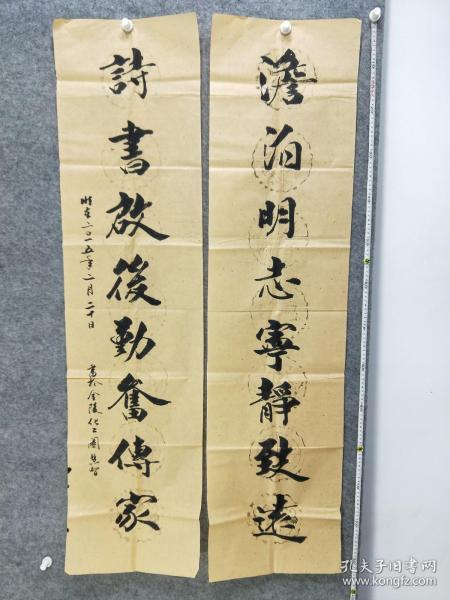 澹泊明志寧靜致遠
詩書啟後勤奮傳家
時在二〇一五年二月二十日
書於金陵化工園
孔夫子旧书网
www.kongfz.com